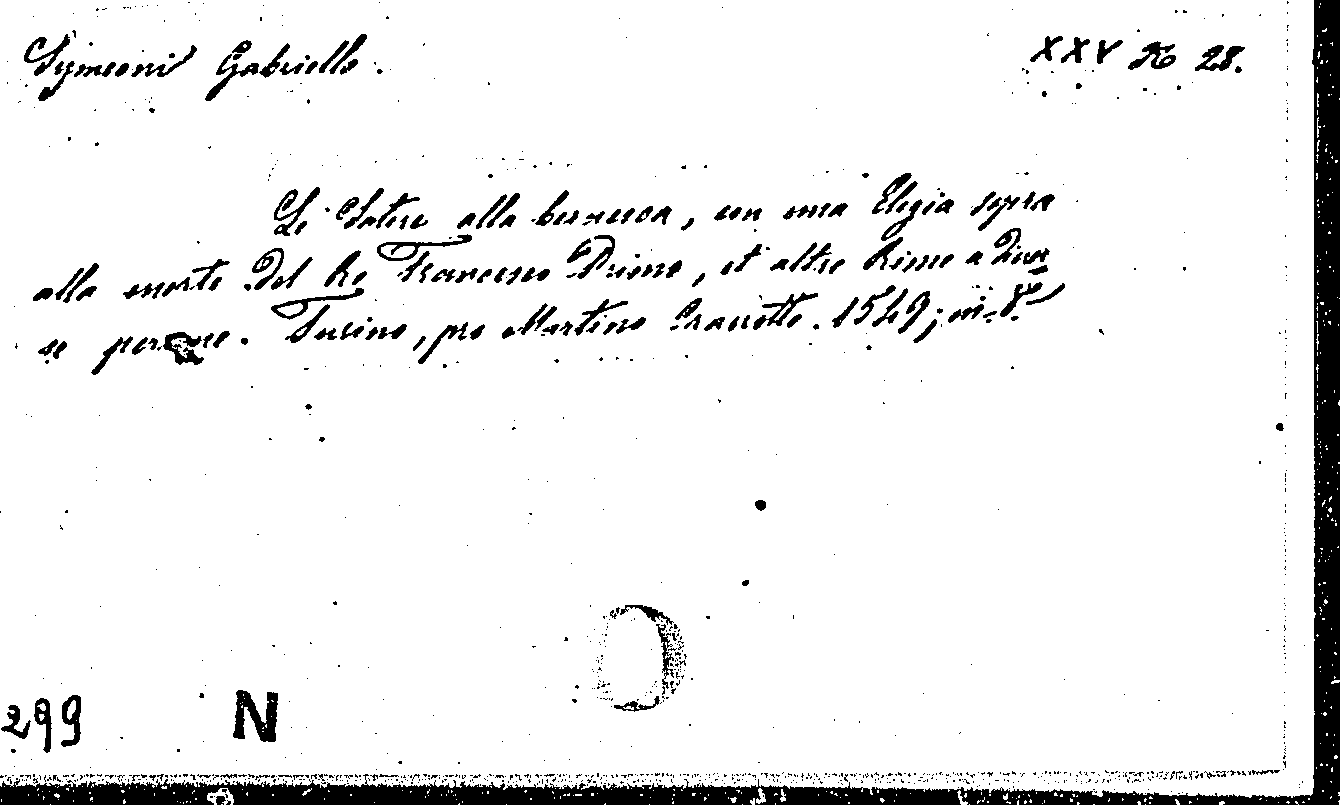 Symeoni Gabriello.
XXV K 28.
Le Satire alla berniesca, con una Elegia sopra
alla morte del Re Francesco Primo, et altre Rime a diver
se persone. Turino, pro Martino Cravotto. 1549; in-8.º
299 N